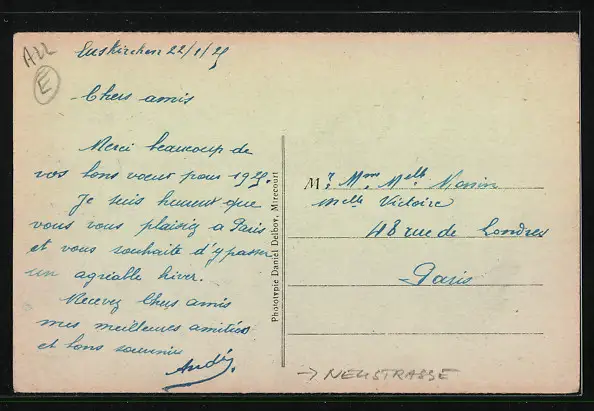 ALL
E
Euskirchen 22/1/29
Chers amis
Merci beaucoup de
vos bons vœux pour 1929.
Je suis heureux que
vous vous plaisiez à Paris
et vous souhaite d'y passer
un agréable hiver.
Recevez chers amis
mes meilleures amitiés
et bons souvenirs
André.
Phototypie Daniel Delboy, Mirecourt
Mr Mme Melle
Melle Victoire
48 rue de Londres
Paris
→ NEUSTRASSE